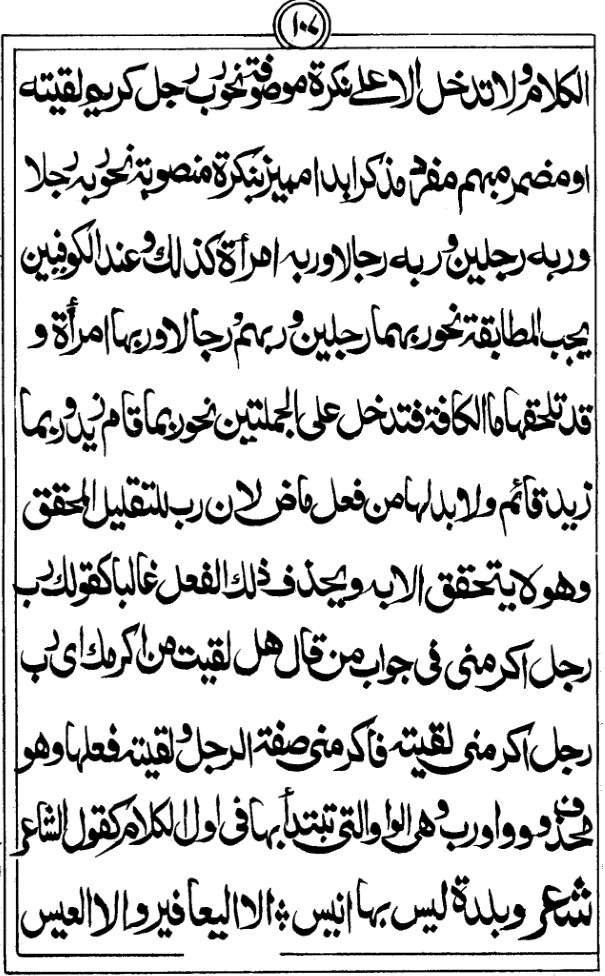 ١٠٧
الكلام ولا تدخل الا على نكرة موصوفة نحو رب رجل كريم لقيته
او مضمر مبهم مفرد مذكر ابدا مميز بنكرة منصوبة نحو ربه رجلا
وربه رجلين وربه رجالا وربه امرأة كذلك وعند الكوفيين
يجب المطابقة نحو ربهما رجلين وربهم رجالا وربها امرأة و
قد تلحقها ما الكافة فتدخل على الجملتين نحو ربما قام زيد وربما
زيد قائم ولا بد لها من فعل ماض لان رب للتقليل المحقق
وهو لا يتحقق الا به ويحذف ذلك الفعل غالبا كقولك رب
رجل اكرمنى فى جواب من قال هل لقيت من اكرمك اى رب
رجل اكرمنى لقيته فاكرمنى صفة الرجل ولقيته فعلها وهو
محذوف وواو رب وهى الواو التى تبتدأ بها فى اول الكلام كقول الشاعر
شعر وبلدة ليس بها انيس ؛ الا اليعافير والا العيس